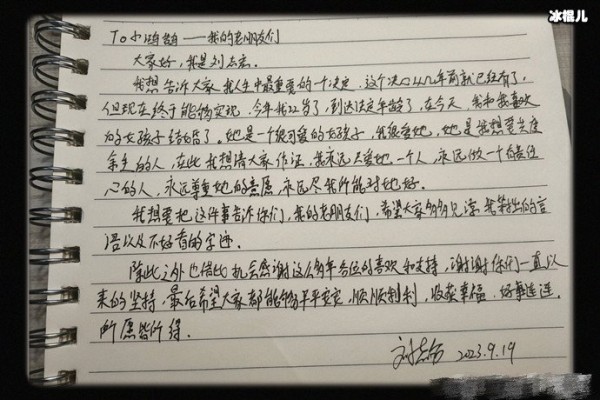 冰棍儿
To 小鹉鹉——我的老朋友们
大家好，我是刘志宏。
我想告诉大家我人生中最重要的一个决定，这个决定几年前就已经有了，
但现在终于能够实现，今年我22岁了，到达法定年龄了，在今天，我和我喜欢
的女孩子结婚了。她是一个很可爱的女孩子，我很爱她，她是我想要共度
余生的人，在此我想请大家作证，我永远只爱她一个人，永远做一个有责任
心的人，永远尊重她的意愿，永远尽我所能对她好。
我想要把这件事告诉你们，我的老朋友们，希望大家多多见谅我笨拙的言
语以及不好看的字迹。
除此之外也借此机会感谢这么多年各位的喜欢和支持，谢谢你们一直以
来的坚持，最后希望大家都能够平平安安，顺顺利利，收获幸福，好事连连，
所愿皆所得。
2023.9.19